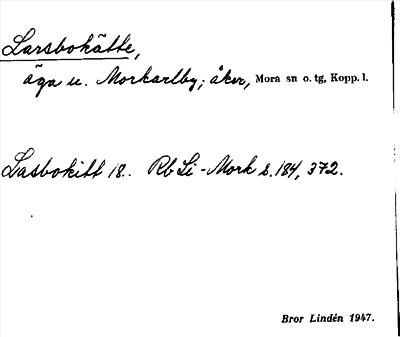 Larsbohätte,
äga u. Morkarlby; åker, Mora sn o. tg, Kopp. l.
Lasbokitt 18.. Rb Li - Mork s. 184, 372.
Bror Lindén 1947.